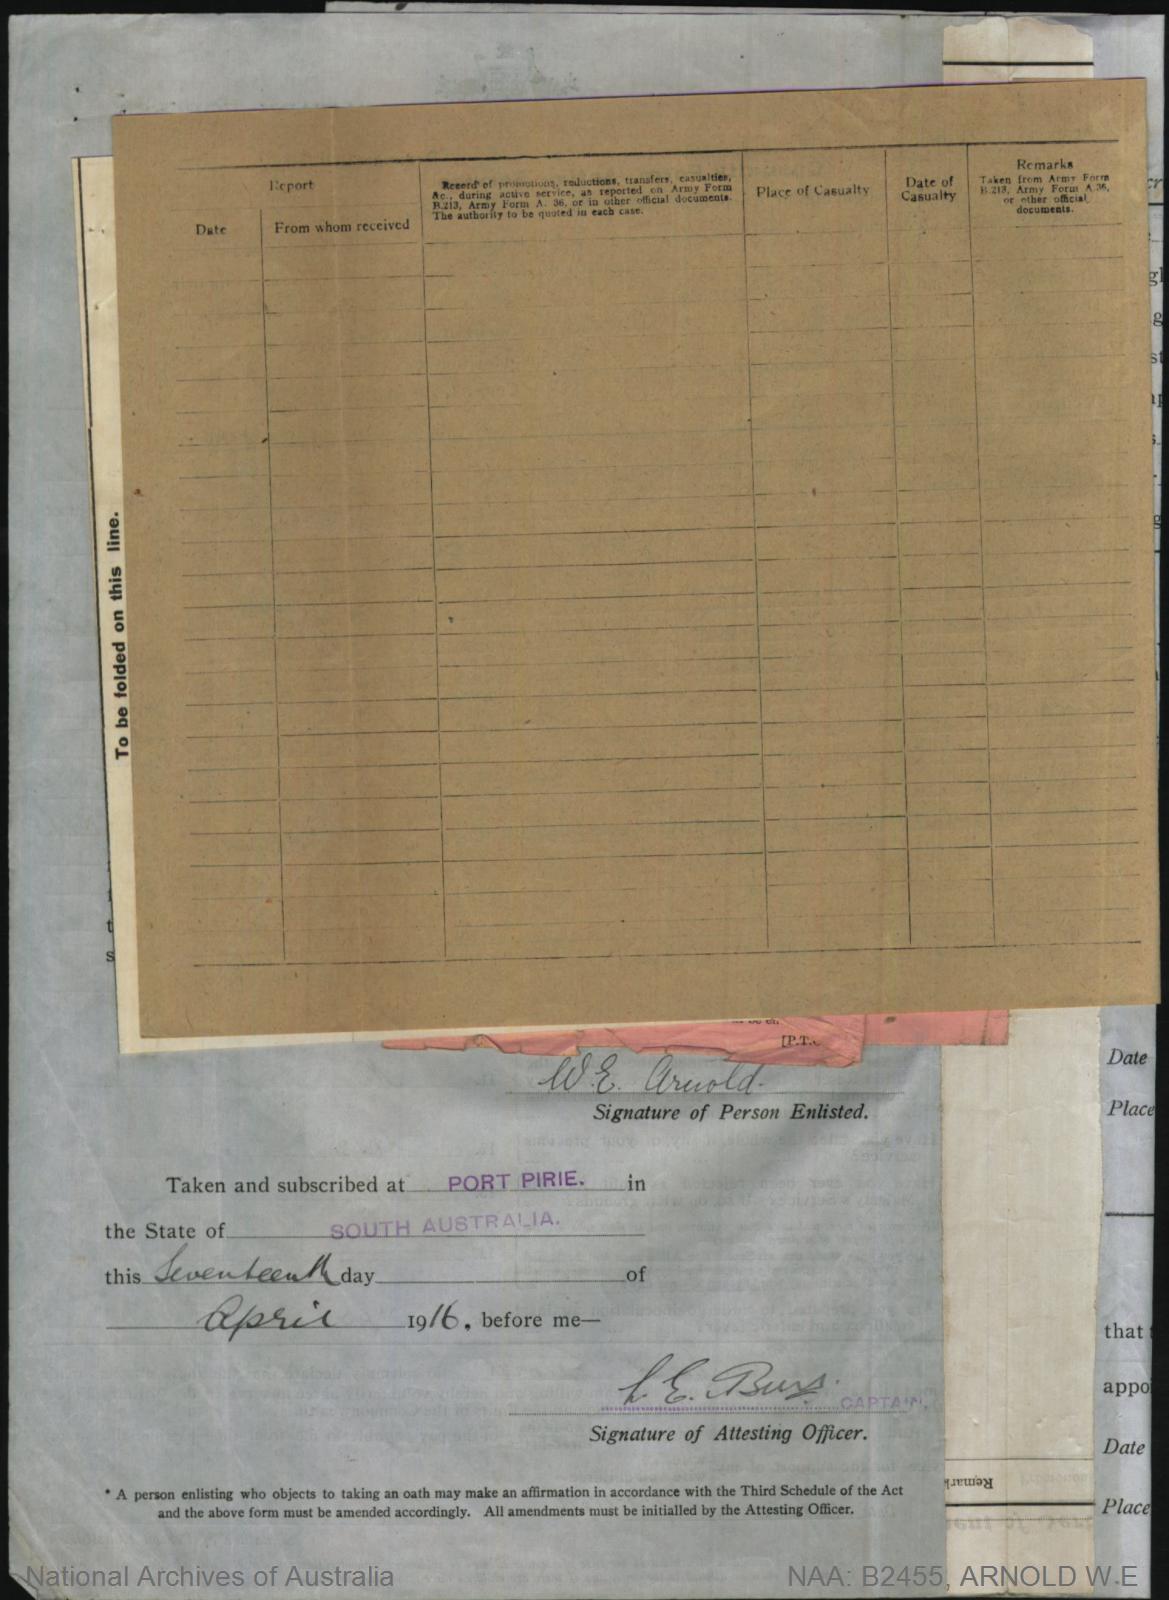 Report
Date
From whom received
Record of promotions, reductions, transfers, casualties,
&c., during active service, as reported on Army Form
B.213, Army Form A. 36, or in other official documents.
The authority to be quoted in each case.
Place of Casualty
Date of
Casualty
Remarks
Taken from Army Form
B.213, Army Form A.36,
or other official
documents.
To be folded on this line.
[P.T.
W.E. Arnold.
Signature of Person Enlisted.
Taken and subscribed at PORT PIRIE. in
the State of SOUTH AUSTRALIA.
this Seventeenth day of
April 1916, before me—
CAPTAIN.
Signature of Attesting Officer.
* A person enlisting who objects to taking an oath may make an affirmation in accordance with the Third Schedule of the Act
and the above form must be amended accordingly. All amendments must be initialled by the Attesting Officer.
Date
Place
that
appo
Date
Place
Remark
National Archives of Australia
NAA: B2455, ARNOLD W E